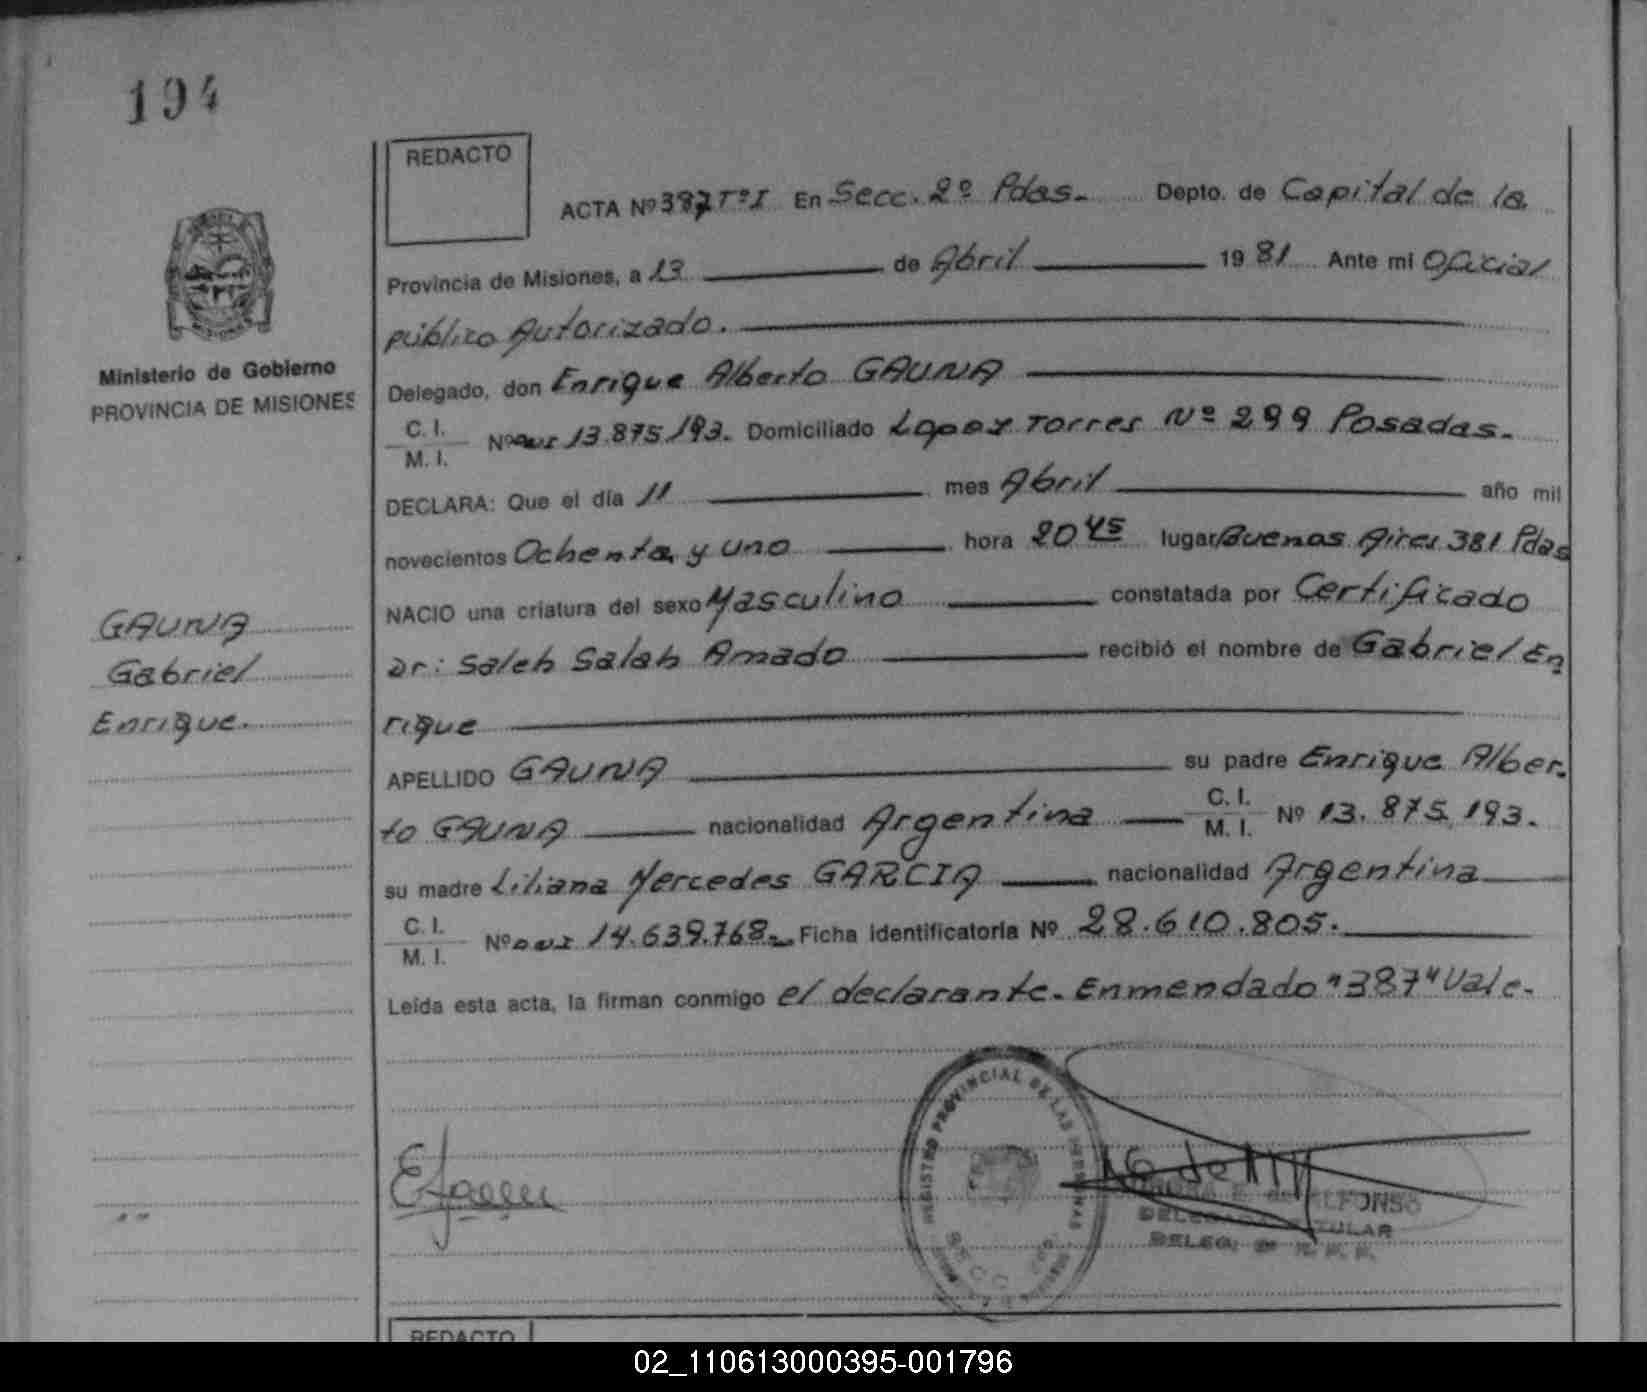 194
REDACTO
ACTA Nº 387 Tº I En Secc. 2º Pdas. Depto. de Capital de la
Provincia de Misiones, a 13 de Abril 1981 Ante mi Oficial
público Autorizado.
Ministerio de Gobierno
PROVINCIA DE MISIONES
Delegado, don Enrique Alberto GAUNA
C. I.
M. I.
Nº DNI 13.875.193. Domiciliado Lopez Torres Nº 299 Posadas.
DECLARA: Que el día 11 mes Abril año mil
novecientos Ochenta y uno hora 20 45 lugar Buenos Aires 381 Pdas
NACIO una criatura del sexo Masculino constatada por Certificado
GAUNA
Gabriel
Enrique.
Dr: Saleh Salah Amado recibió el nombre de Gabriel En
rique
APELLIDO GAUNA su padre Enrique Alber.
to GAUNA nacionalidad Argentina C. I. M. I. Nº 13.875.193.
su madre Liliana Mercedes GARCIA nacionalidad Argentina
C. I.
M. I.
Nº DNI 14.639.768. Ficha Identificatoria Nº 28.610.805.
Leída esta acta, la firman conmigo el declarante. Enmendado "387" Vale.
REGISTRO PROVINCIAL DE LAS PERSONAS
SECC
de ALFONSO
DELEGADA TITULAR
DELEG. 2º R. P. P.
REDACTO
02_110613000395-001796